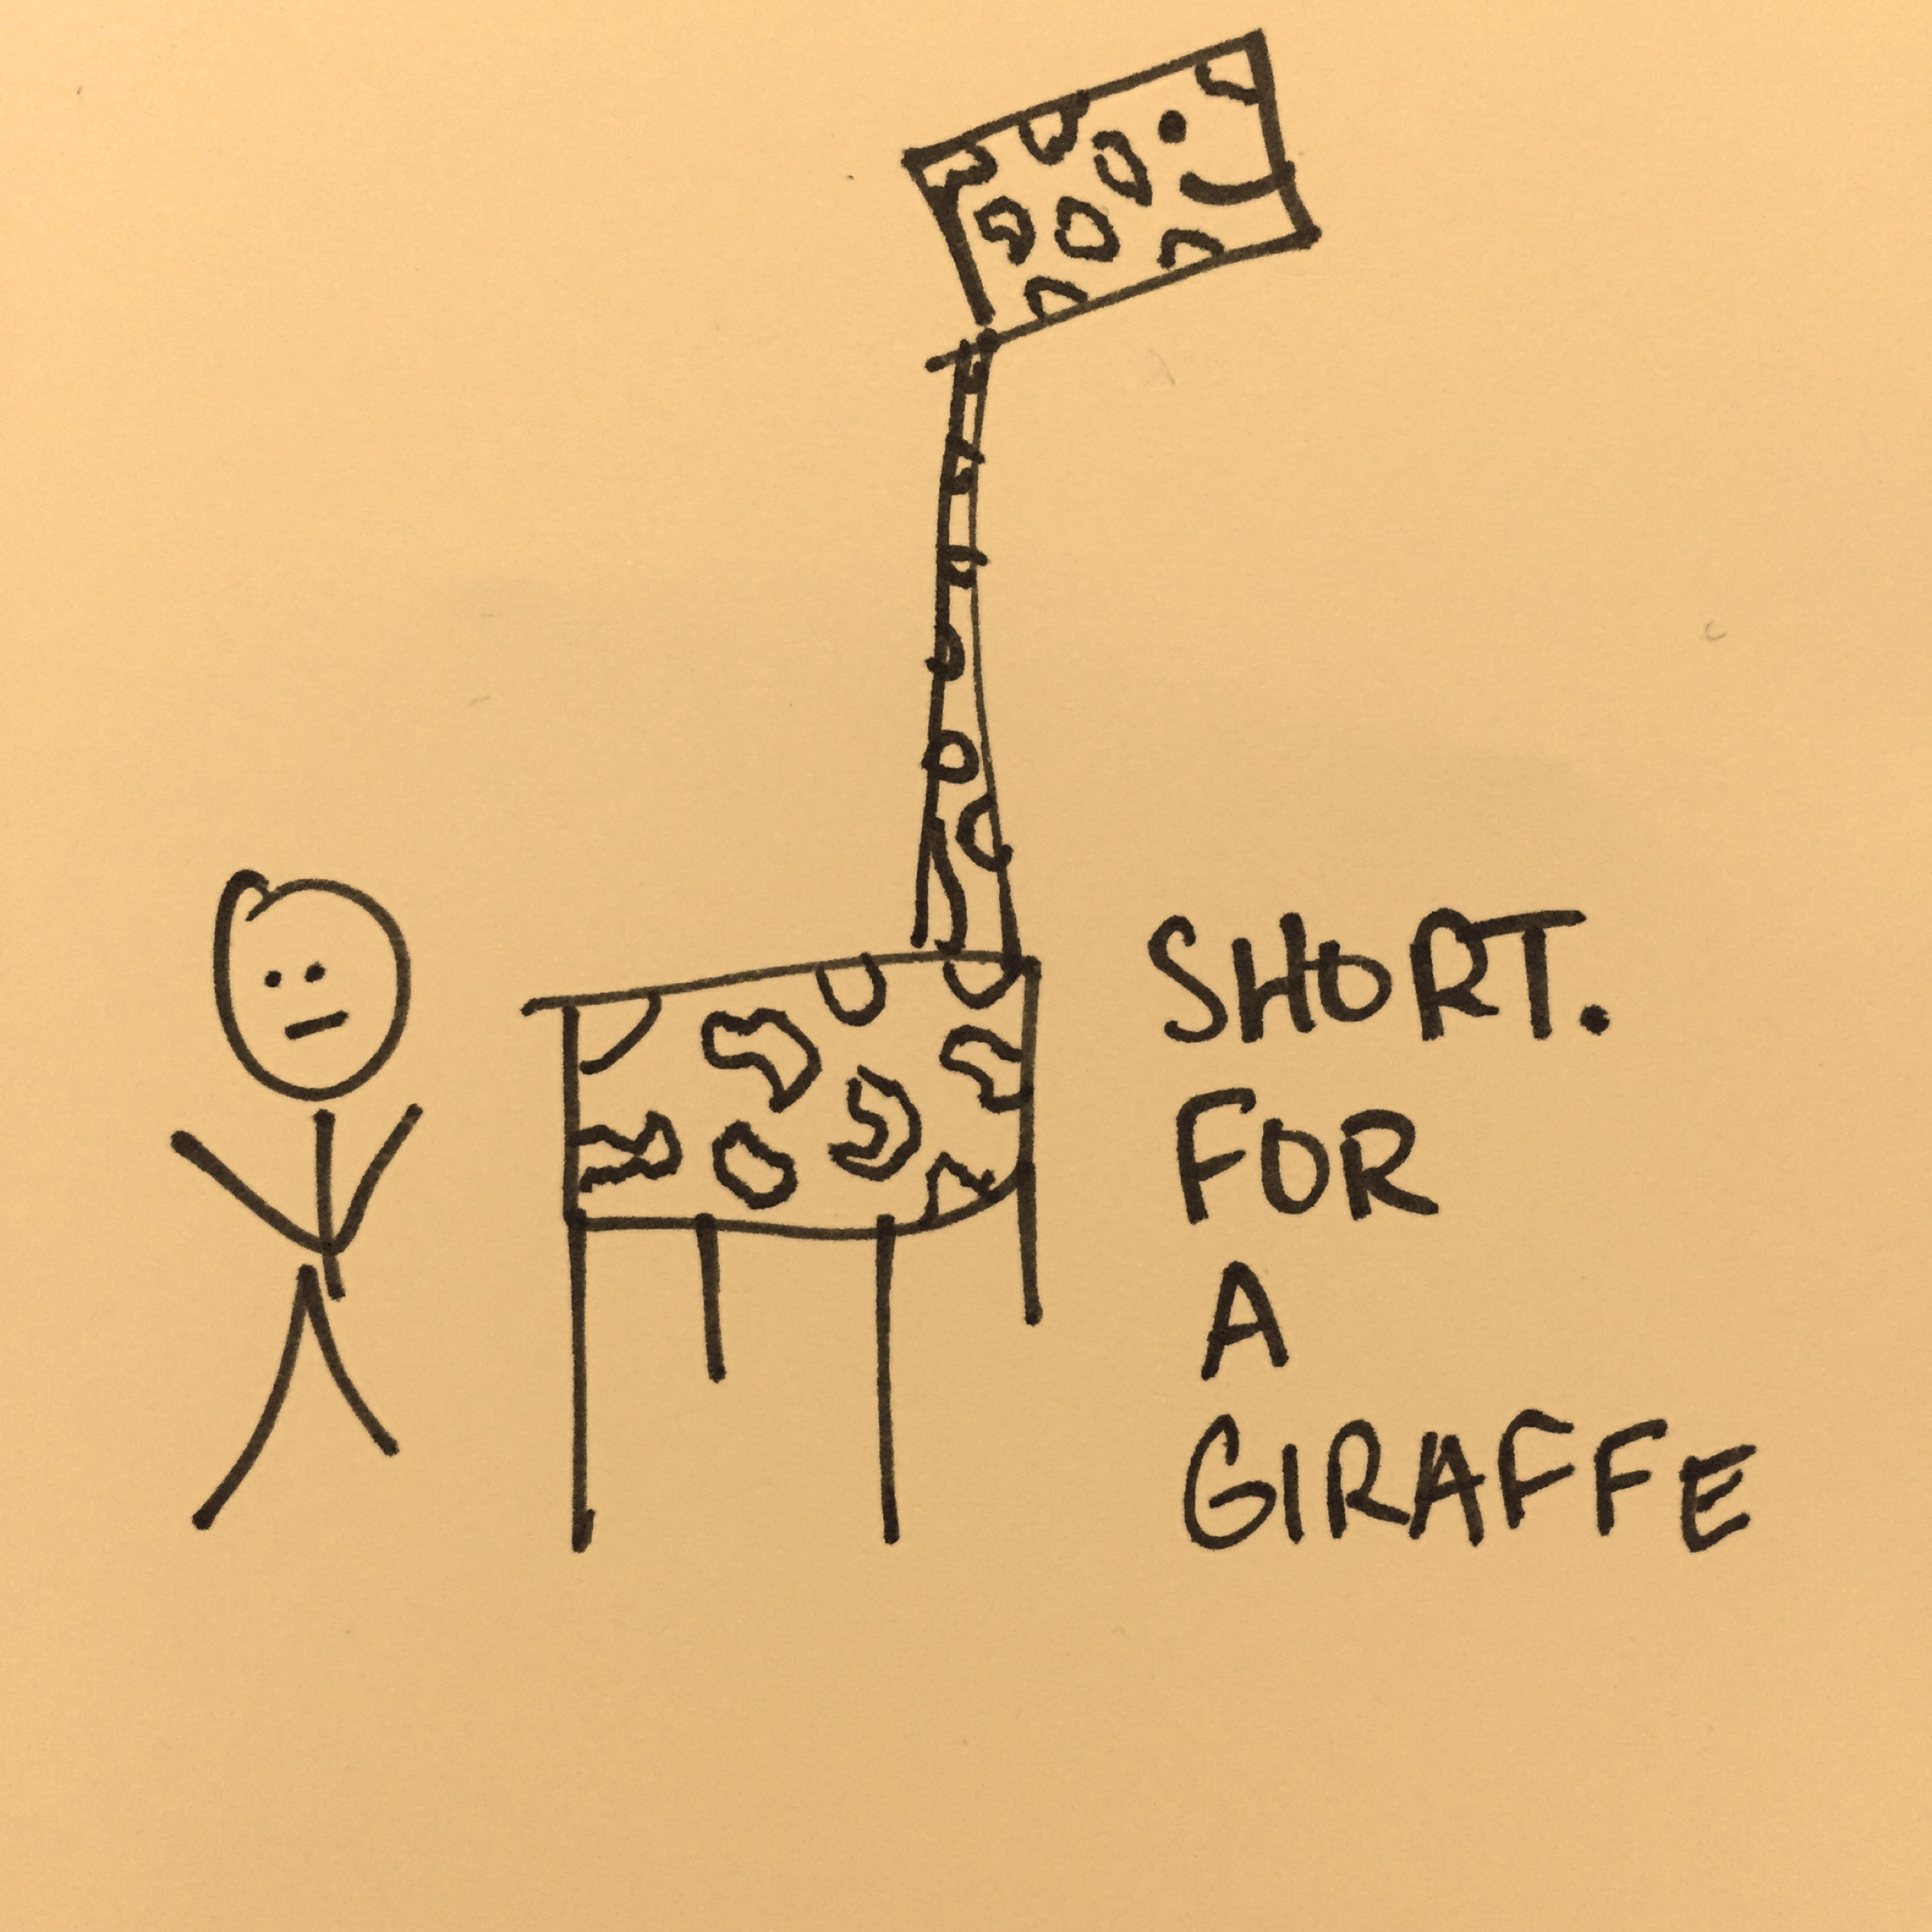 SHORT.
FOR
A
GIRAFFE